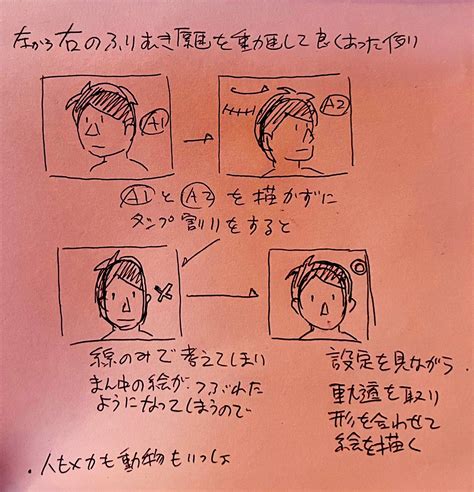 左から右のふりむき原画を動画して良くあった例
A1
A2
A1とA2を描かずに
タンプ割りをすると
線のみで考えてしまい
まん中の絵がつぶれた
ようになってしまうので
設定を見ながら
軌道を取り
形を合わせて
絵を描く
・人もメカも動物もいっしょ